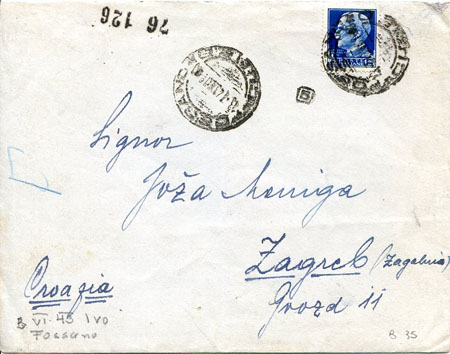 76 126
B
Signor
Joža Moniga
Zagreb (Zagabria)
Gvozd 11
Croazia
VI-43 Ivo
Fossano
B 35